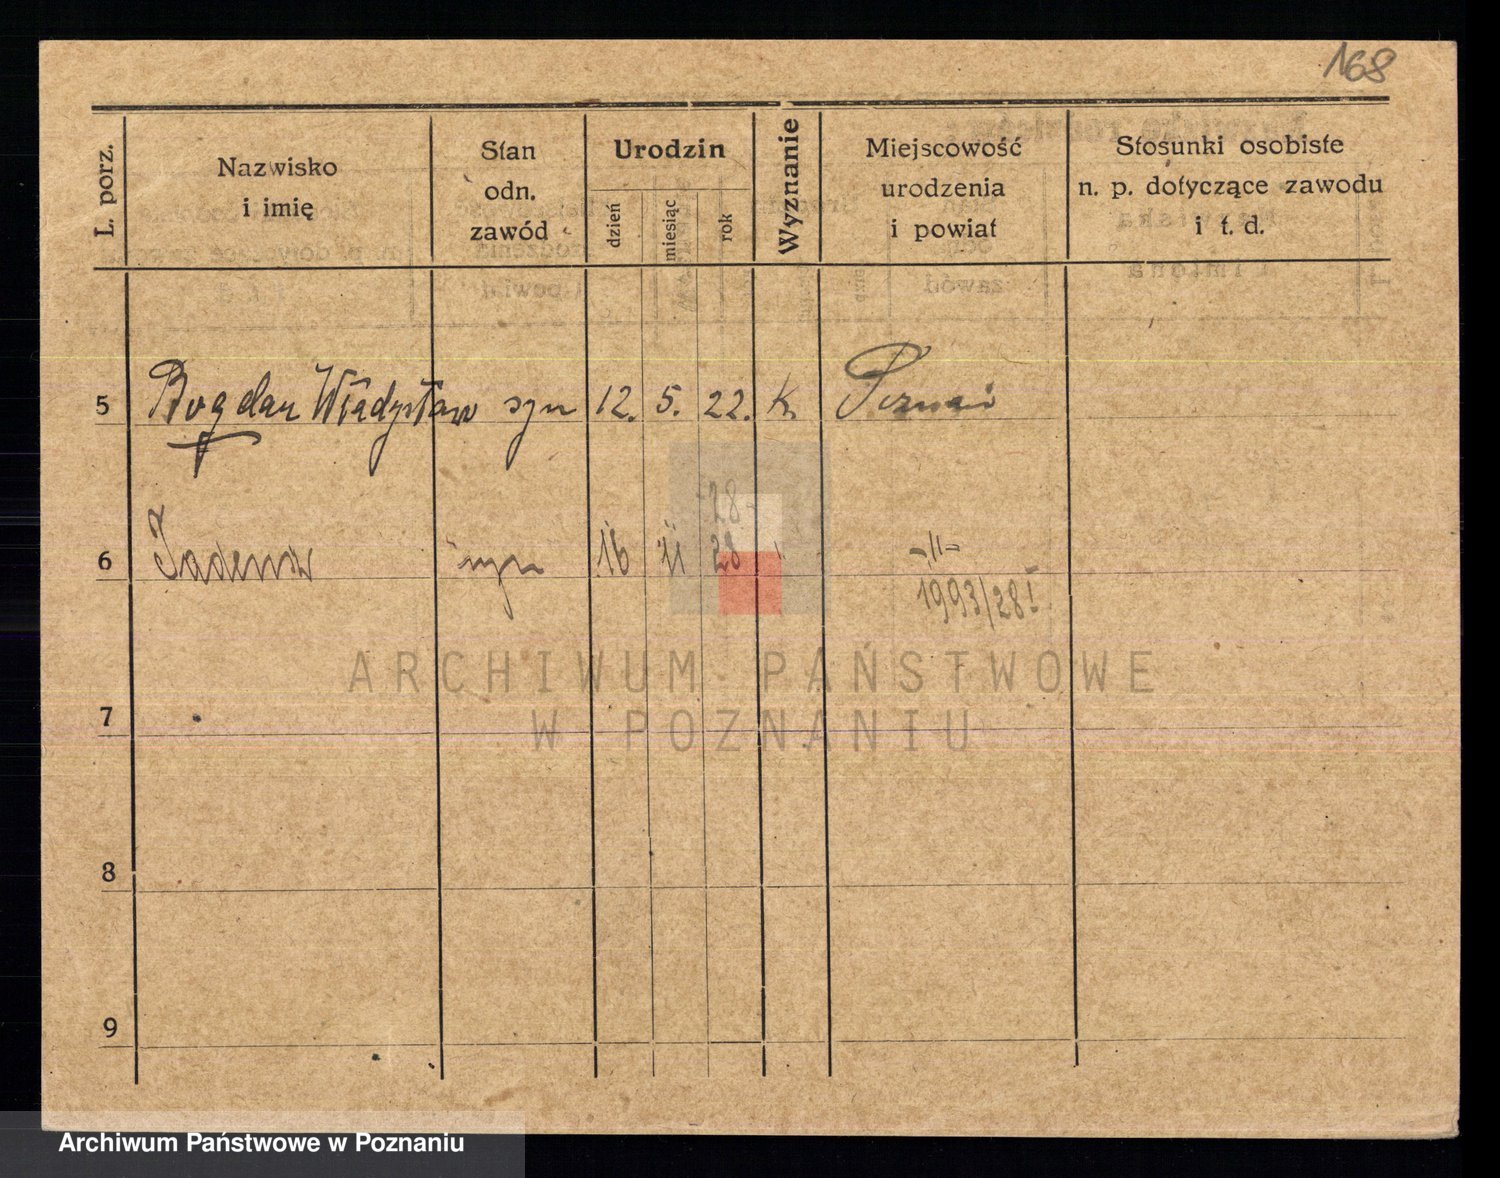 168
L. porz.
Nazwisko
i imię
Stan
odn.
zawód
Urodzin
dzień
miesiąc
rok
Wyznanie
Miejscowość
urodzenia
i powiat
Stosunki osobiste
n. p. dotyczące zawodu
i t. d.
5 Bogdan Władysław syn 12. 5. 22. k.
28
6 syn 16 11 28 -"-
1993/28 I
ARCHIWUM PAŃSTWOWE
W POZNANIU
7
8
9
Archiwum Państwowe w Poznaniu